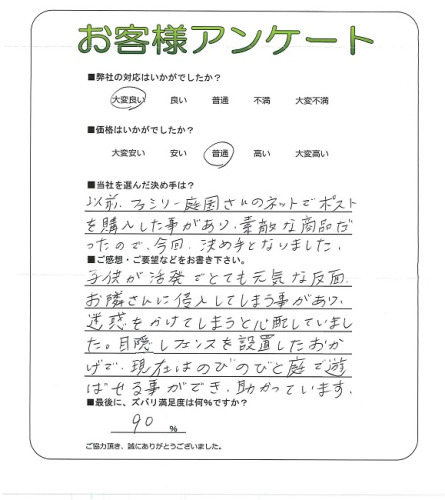 お客様アンケート
■弊社の対応はいかがでしたか？
大変良い 良い 普通 不満 大変不満
■価格はいかがでしたか？
大変安い 安い 普通 高い 大変高い
■当社を選んだ決め手は？
以前、ファミリー庭園さんのネットでポスト
を購入した事があり、素敵な商品だ
ったので、今回、決め手となりました。
■ご感想・ご要望などをお書き下さい。
子供が活発でとても元気な反面、
お隣さんに侵入してしまう事があり、
迷惑をかけてしまうと心配していまし
た。目隠しフェンスを設置したおか
げで、現在はのびのびと庭で遊
ばせる事ができ、助かっています。
■最後に、ズバリ満足度は何％ですか？
90 ％
ご協力頂き、誠にありがとうございました。